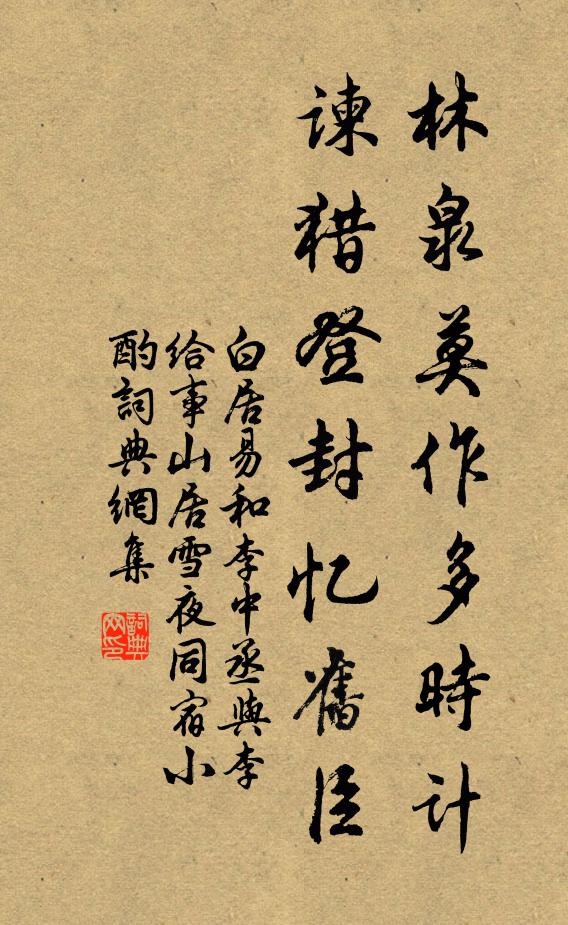 林泉莫作多時计
谏猎登封忆舊臣
白居易和李中丞與李
给事山居雪夜同宿小
酌詞典網集
詞典
网印